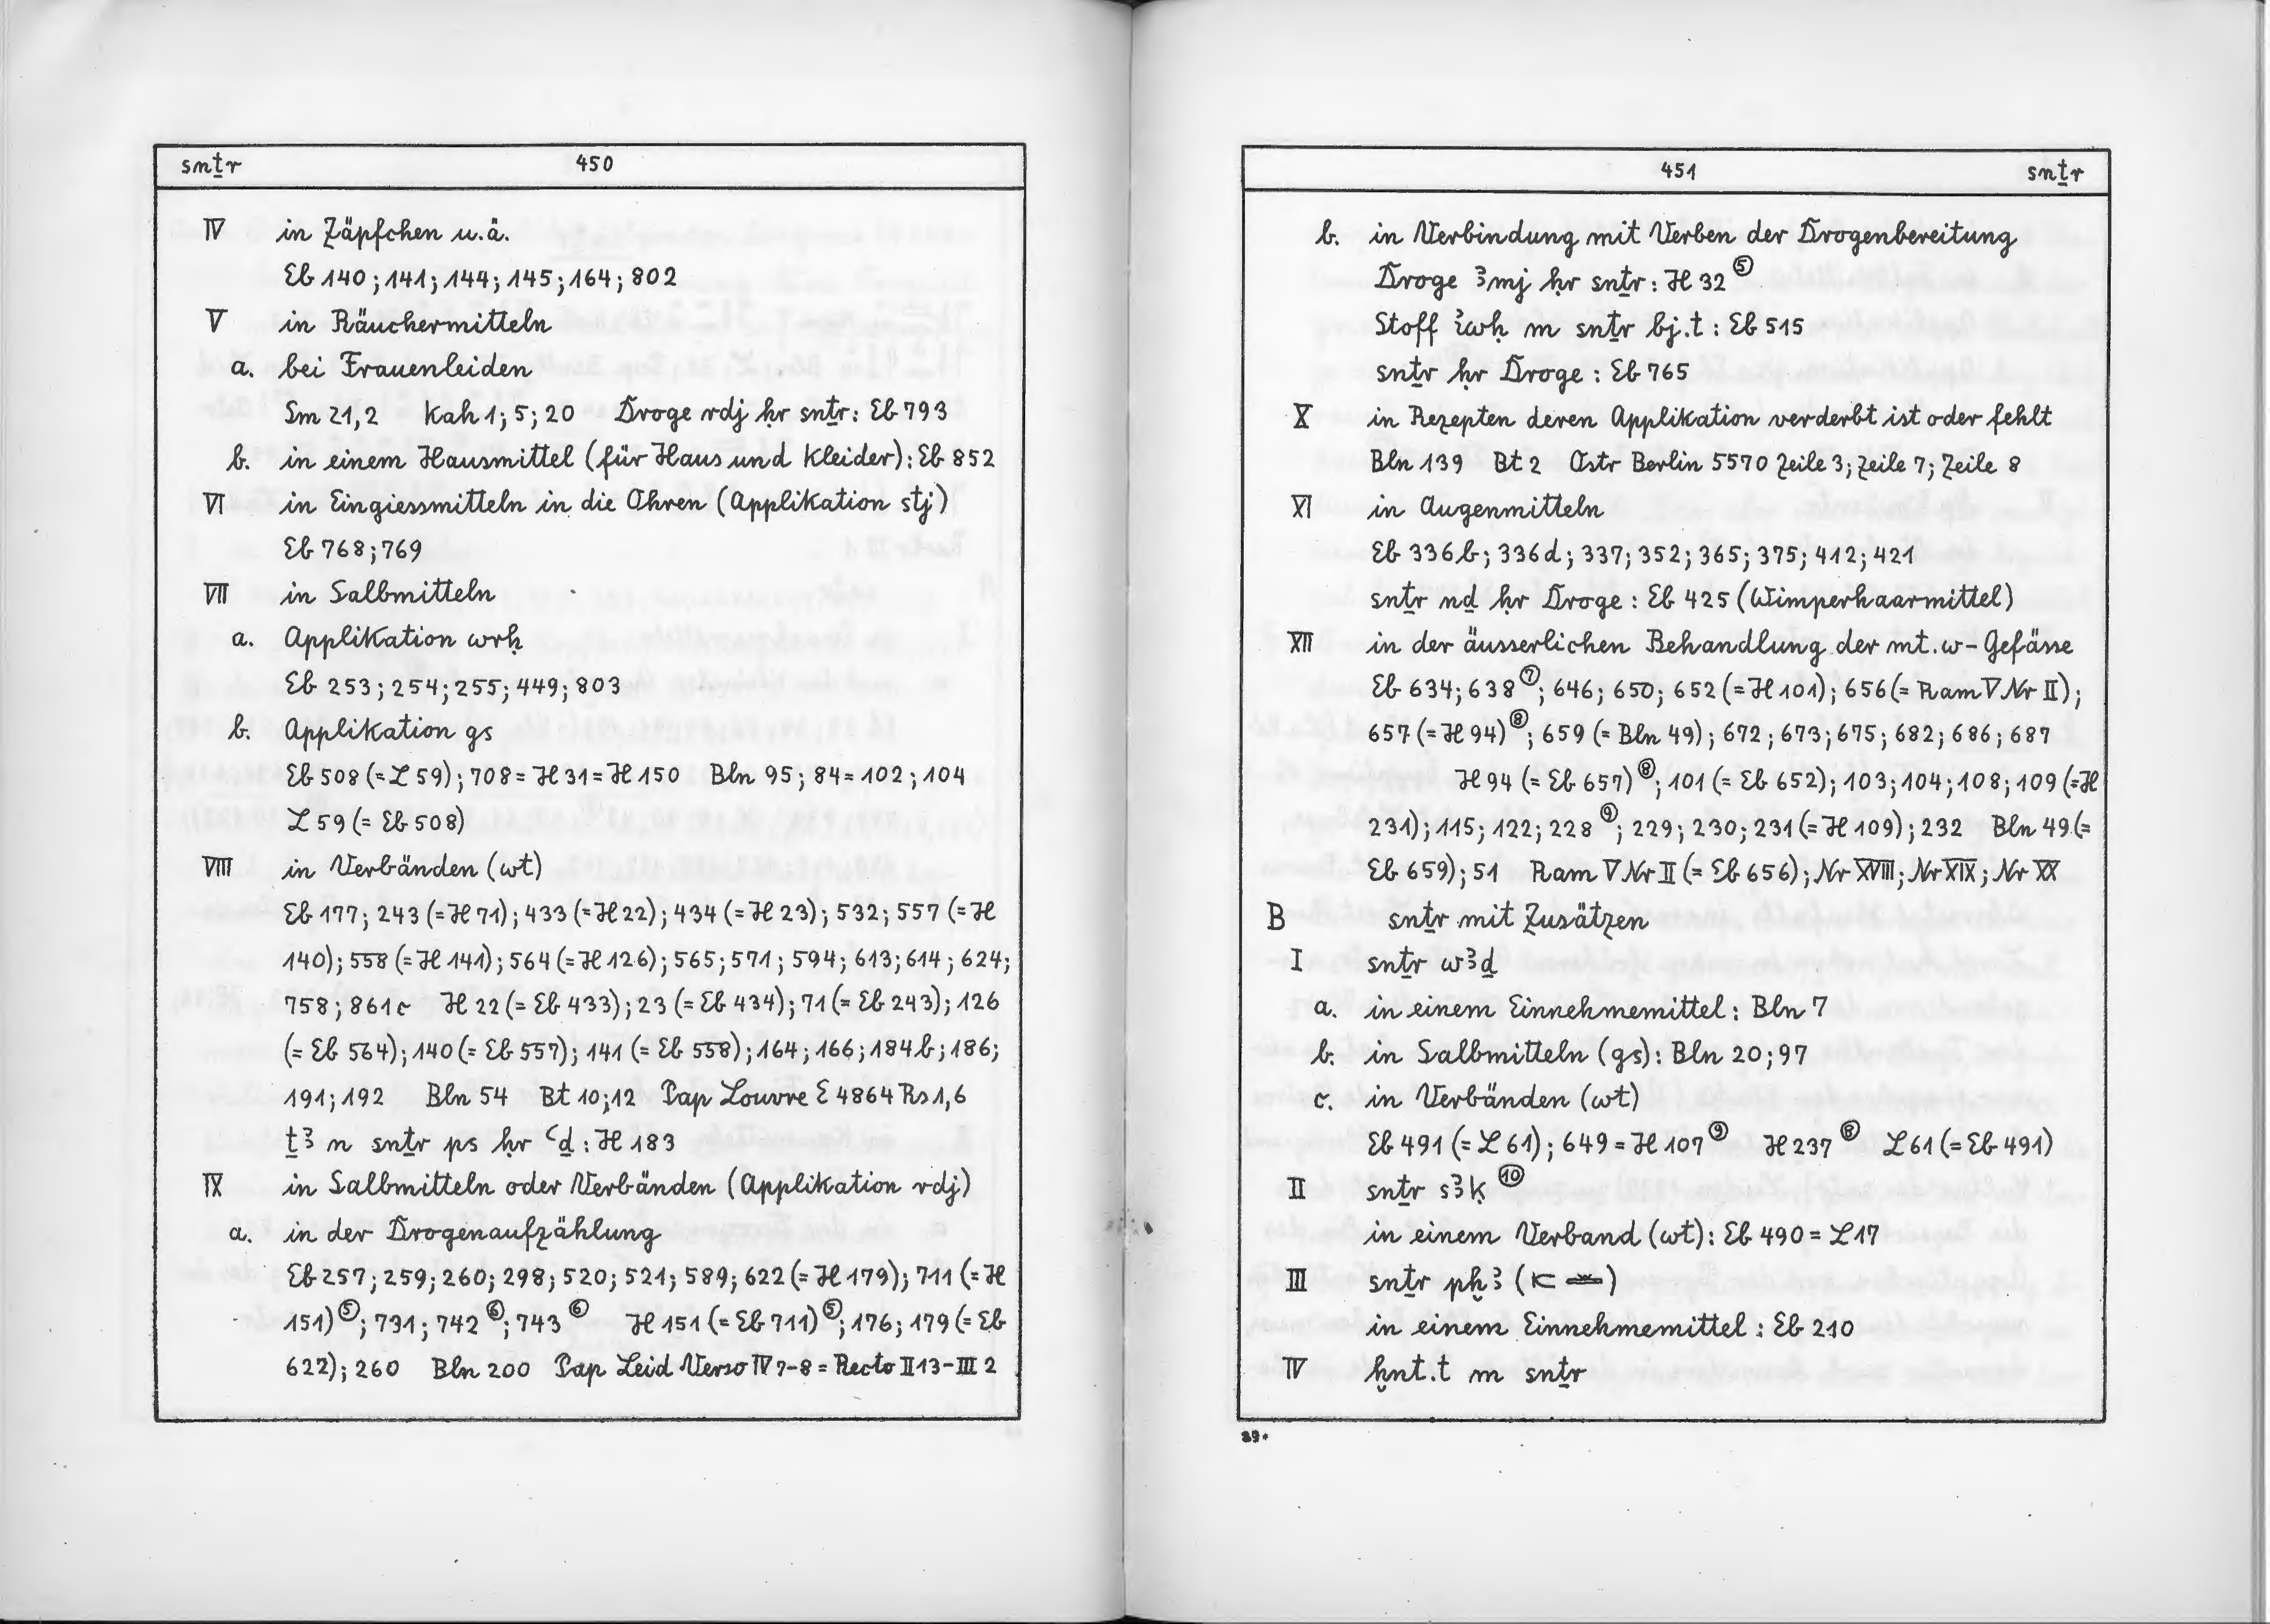 snṯr 450
IV in Zäpfchen u.ä.
Eb 140; 141; 144; 145; 164; 802
V in Räuchermitteln
a. bei Frauenleiden
Sm 21,2 Kah 1; 5; 20 Droge rdj ḥr snṯr: Eb 793
b. in einem Hausmittel (für Haus und Kleider): Eb 852
VI in Eingiessmitteln in die Ohren (Applikation stj)
Eb 768; 769
VII in Salbmitteln
a. Applikation wrḥ
Eb 253; 254; 255; 449; 803
b. Applikation gs
Eb 508 (= L 59); 708 = H 31 = H 150 Bln 95; 84 = 102; 104
L 59 (= Eb 508)
VIII in Verbänden (wt)
Eb 177; 243 (= H 71); 433 (= H 22); 434 (= H 23); 532; 557 (= H
140); 558 (= H 141); 564 (= H 126); 565; 571; 594; 613; 614; 624;
758; 861c H 22 (= Eb 433); 23 (= Eb 434); 71 (= Eb 243); 126
(= Eb 564); 140 (= Eb 557); 141 (= Eb 558); 164; 166; 184b; 186;
191; 192 Bln 54 Bt 10; 12 Pap Louvre E 4864 Rs 1,6
ṯꜣ n snṯr ps ḥr ꜥḏ: H 183
IX in Salbmitteln oder Verbänden (Applikation rdj)
a. in der Drogenaufzählung
Eb 257; 259; 260; 298; 520; 521; 589; 622 (= H 179); 711 (= H
151)⑤; 731; 742⑥; 743⑥ H 151 (= Eb 711)⑤; 176; 179 (= Eb
622); 260 Bln 200 Pap Leid Verso IV 7-8 = Recto II 13 - III 2
451 snṯr
b. in Verbindung mit Verben der Drogenbereitung
Droge ꜣmj ḥr snṯr: H 32⑤
Stoff iwḥ m snṯr bj.t: Eb 515
snṯr ḥr Droge: Eb 765
X in Rezepten deren Applikation verderbt ist oder fehlt
Bln 139 Bt 2 Ostr Berlin 5570 Zeile 3; Zeile 7; Zeile 8
XI in Augenmitteln
Eb 336b; 336d; 337; 352; 365; 375; 412; 421
snṯr nḏ ḥr Droge: Eb 425 (Wimperhaarmittel)
XII in der äusserlichen Behandlung der mt.w-Gefässe
Eb 634; 638⑦; 646; 650; 652 (= H 101); 656 (= Ram V Nr II);
657 (= H 94)⑧; 659 (= Bln 49); 672; 673; 675; 682; 686; 687
H 94 (= Eb 657)⑧; 101 (= Eb 652); 103; 104; 108; 109 (= H
231); 115; 122; 228⑨; 229; 230; 231 (= H 109); 232 Bln 49 (=
Eb 659); 51 Ram V Nr II (= Eb 656); Nr XVIII; Nr XIX; Nr XX
B snṯr mit Zusätzen
I snṯr wꜣḏ
a. in einem Einnehmemittel: Bln 7
b. in Salbmitteln (gs): Bln 20; 97
c. in Verbänden (wt)
Eb 491 (= L 61); 649 = H 107⑨ H 237⑧ L 61 (= Eb 491)
II snṯr sꜣḳ⑩
in einem Verband (wt): Eb 490 = L 17
III snṯr pḫꜣ
in einem Einnehmemittel: Eb 210
IV ḫnt.t m snṯr
29*